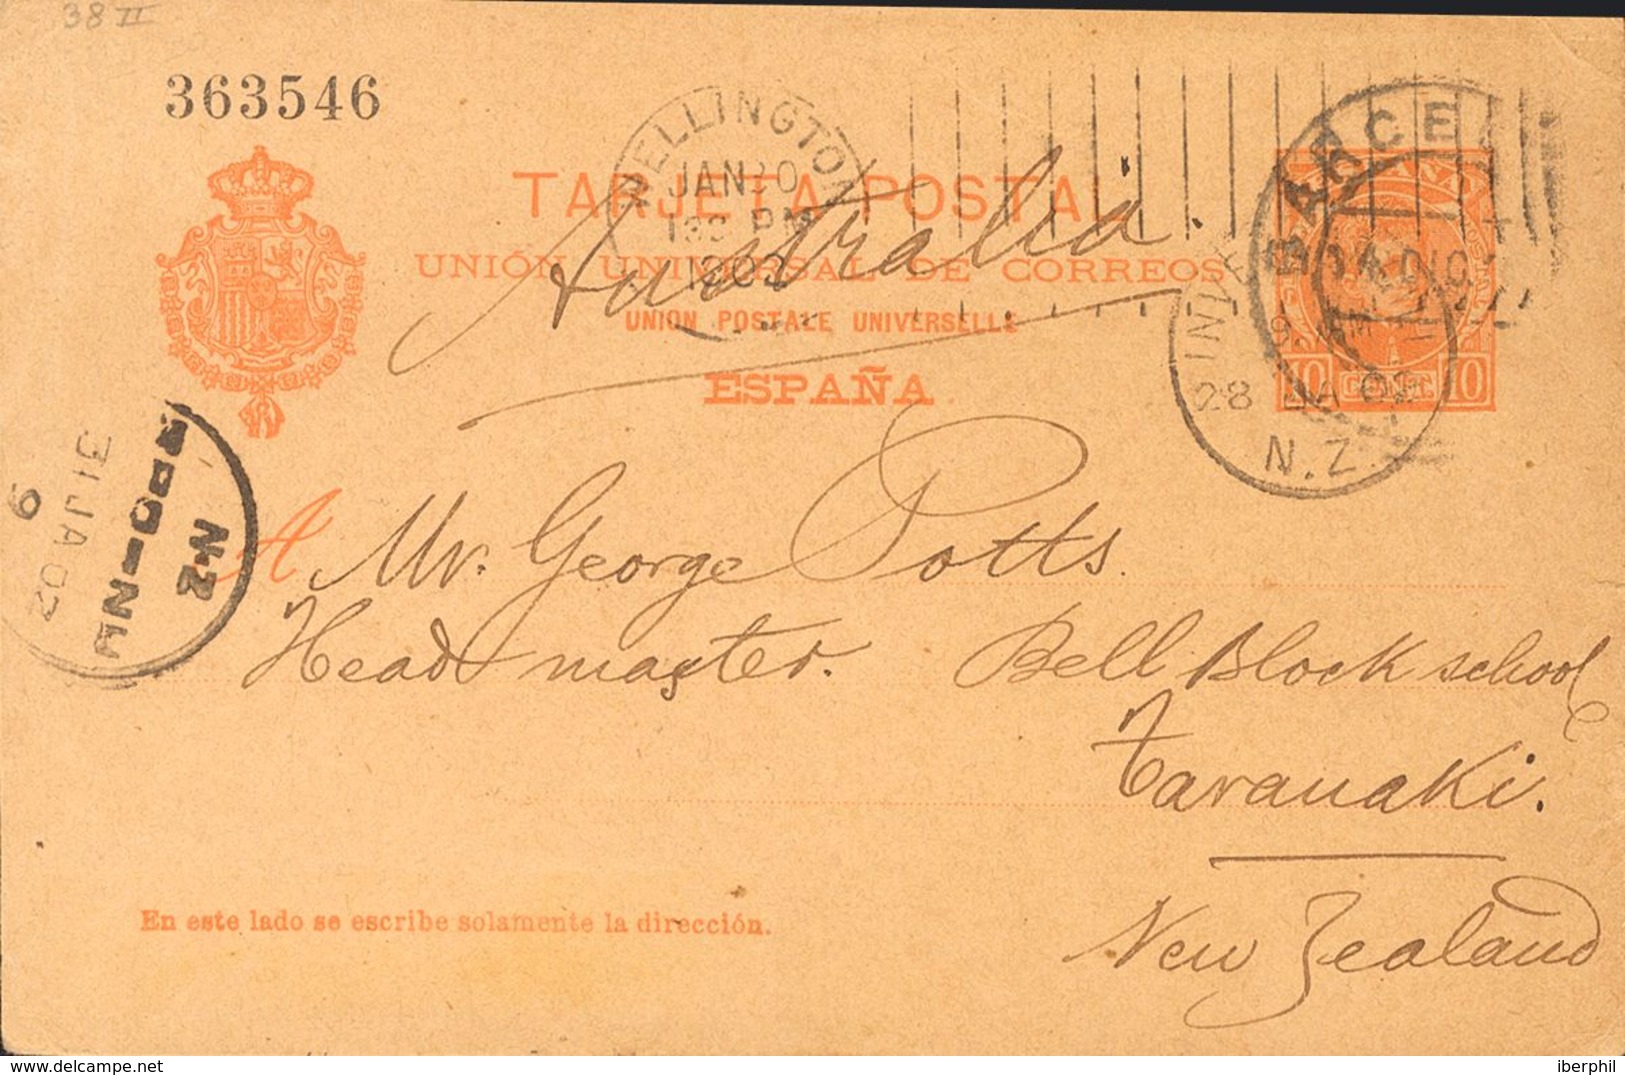 38 II
363546
WELLINGTON
JAN 30
130 PM
1902
TARJETA POSTAL
Australia
UNIÓN UNIVERSAL DE CORREOS
UNION POSTALE UNIVERSELLE
ESPAÑA
BARCEL
DIC
10 CENT. 10
28 JA 02
N.Z.
N.Z
31 JA 02
9
A Mr. George Potts.
Head master. Bell Block school
Taranaki.
New Zealand
En este lado se escribe solamente la dirección.
delcampe.net
iberphil